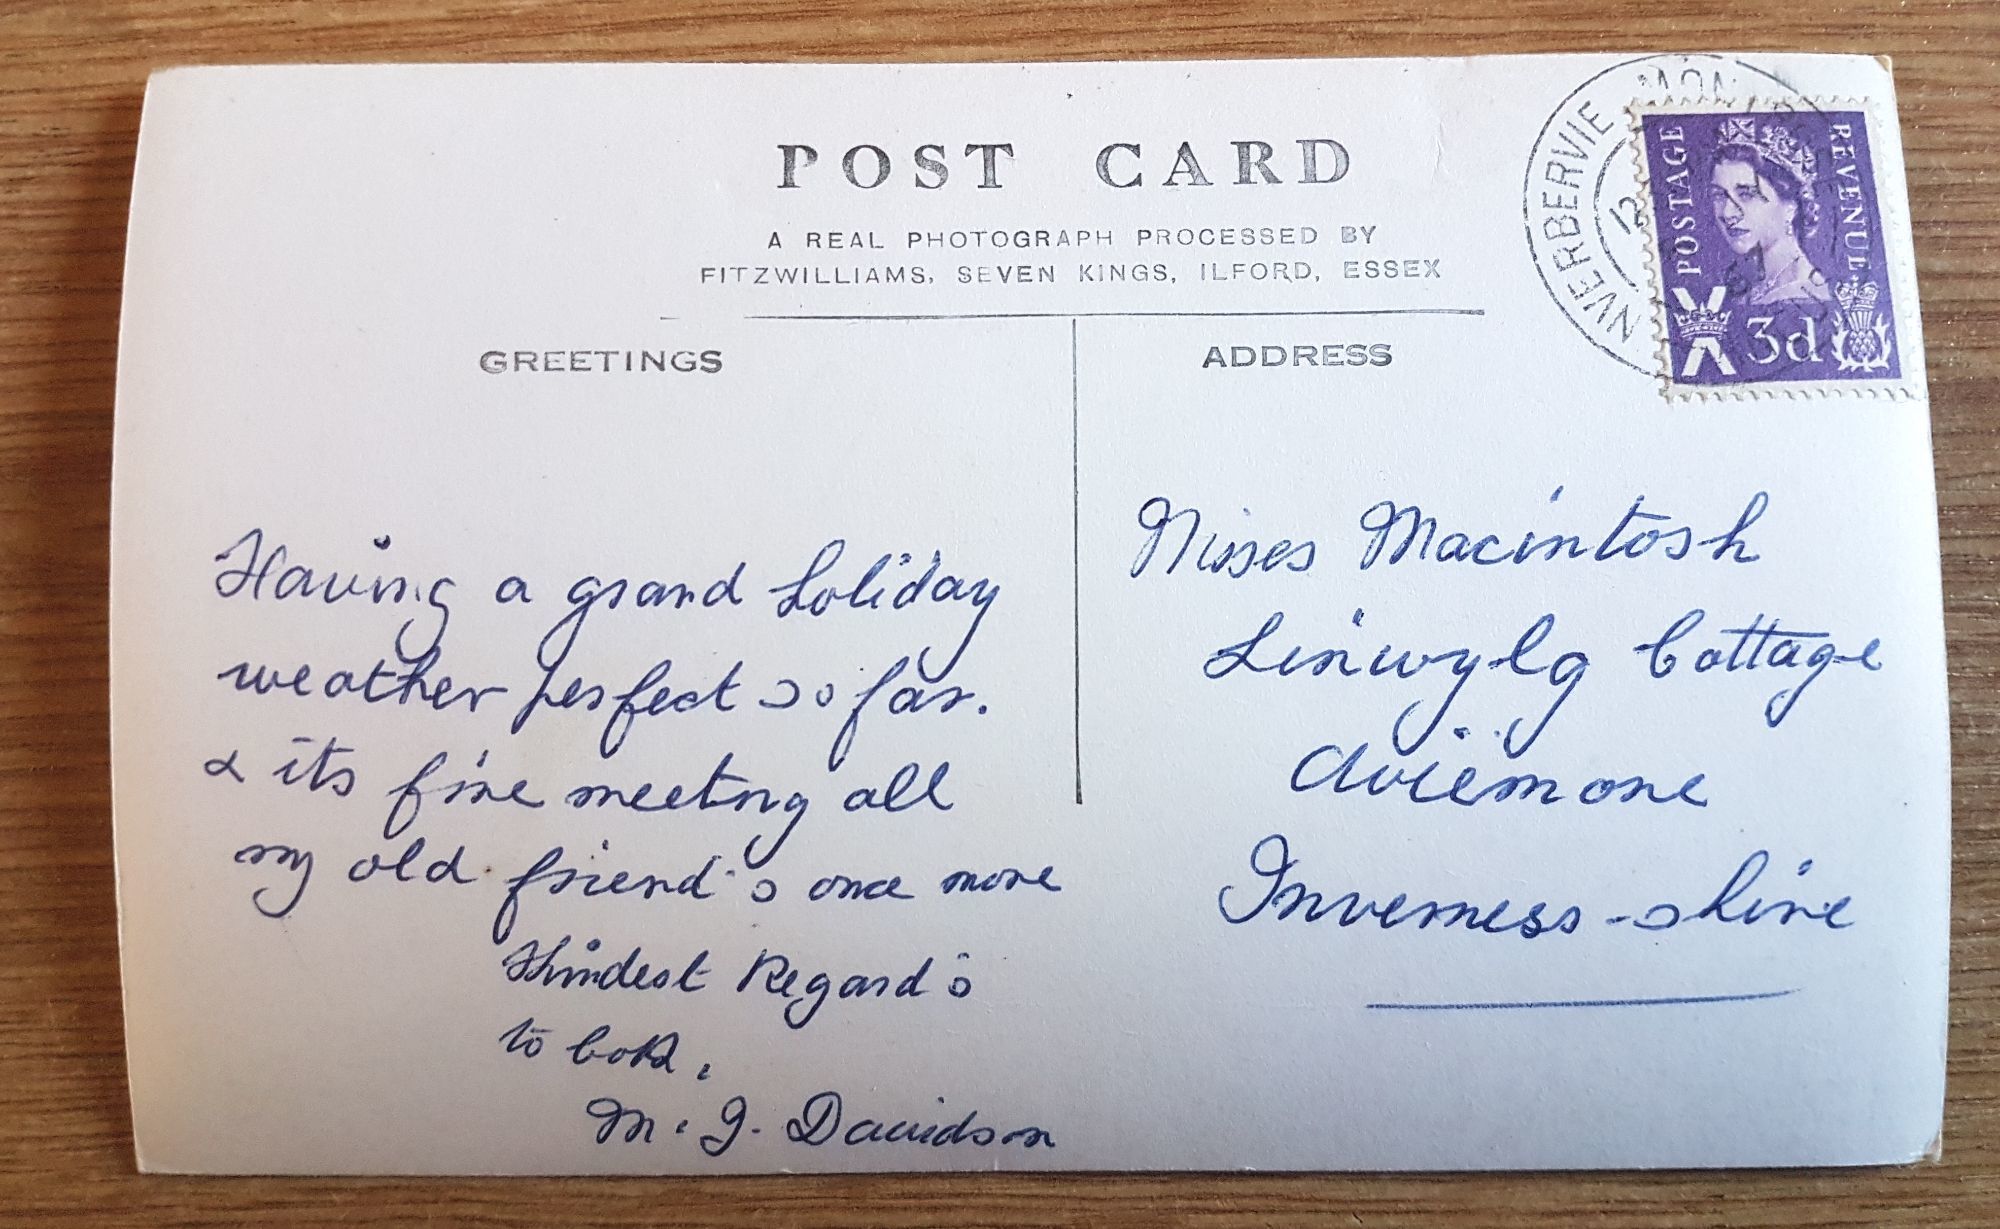 POST CARD
A REAL PHOTOGRAPH PROCESSED BY
FITZWILLIAMS, SEVEN KINGS, ILFORD, ESSEX
GREETINGS
Having a grand holiday
weather perfect so far.
& its fine meeting all
my old friend's once more
Kindest Regard's
to both.
M. J. Davidson
ADDRESS
Misses Macintosh
Linwylg Cottage
Aviemore
Inverness-shire
NVERBERVIE MON
POSTAGE
REVENUE
3d